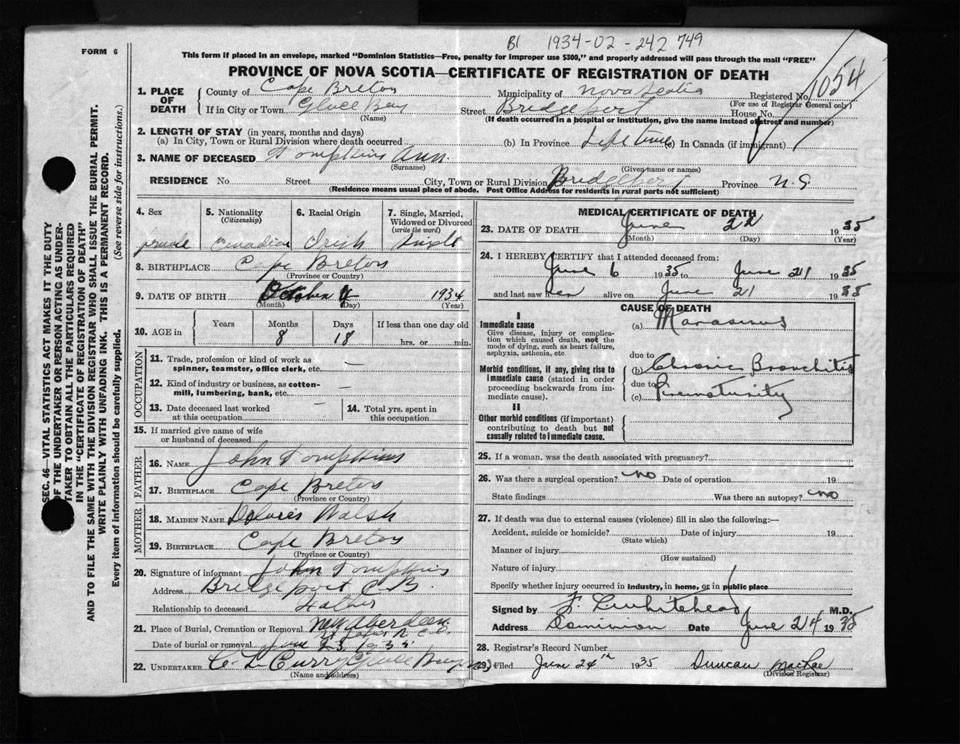 B1 1934-02-242749
FORM 6
This form if placed in an envelope, marked "Dominion Statistics—Free, penalty for improper use $300," and properly addressed will pass through the mail "FREE"
PROVINCE OF NOVA SCOTIA—CERTIFICATE OF REGISTRATION OF DEATH
1054
1. PLACE OF DEATH County of Cape Breton Municipality of Nova Scotia Registered No.
(For use of Registrar General only)
If in City or Town Glace Bay Street Bridgeport House No.
(Name) (If death occurred in a hospital or institution, give the name instead of street and number)
2. LENGTH OF STAY (in years, months and days)
(a) In City, Town or Rural Division where death occurred (b) In Province Life time In Canada (if immigrant)
3. NAME OF DECEASED Tompkins Ann.
(Surname) (Given name or names)
RESIDENCE No. Street City, Town or Rural Division Bridgeport Province N.S.
(Residence means usual place of abode. Post Office Address for residents in rural parts not sufficient)
SEC. 46—VITAL STATISTICS ACT MAKES IT THE DUTY
OF THE UNDERTAKER OR PERSON ACTING AS UNDER-
TAKER TO OBTAIN ALL THE PARTICULARS REQUIRED
IN THE "CERTIFICATE OF REGISTRATION OF DEATH"
AND TO FILE THE SAME WITH THE DIVISION REGISTRAR WHO SHALL ISSUE THE BURIAL PERMIT.
WRITE PLAINLY WITH UNFADING INK. THIS IS A PERMANENT RECORD.
Every item of information should be carefully supplied. (See reverse side for instructions.)
4. Sex female
5. Nationality (Citizenship) Canadian
6. Racial Origin Irish
7. Single, Married, Widowed or Divorced (write the word) Single
8. BIRTHPLACE Cape Breton
(Province or Country)
9. DATE OF BIRTH October 4 1934
(Month) (Day) (Year)
10. AGE in Years Months 8 Days 18 If less than one day old
hrs. or min.
OCCUPATION
11. Trade, profession or kind of work as spinner, teamster, office clerk, etc. —
12. Kind of industry or business, as cotton-mill, lumbering, bank, etc. —
13. Date deceased last worked at this occupation —
14. Total yrs. spent in this occupation
15. If married give name of wife or husband of deceased
FATHER
16. NAME John Tompkins
17. BIRTHPLACE Cape Breton
(Province or Country)
MOTHER
18. MAIDEN NAME Dolores Walsh
19. BIRTHPLACE Cape Breton
(Province or Country)
20. Signature of informant John Tompkins
Address Bridgeport C.B.
Relationship to deceased Father
21. Place of Burial, Cremation or Removal New Aberdeen
Date of burial or removal June 23 1935
22. UNDERTAKER C L Curry Glace Bay
(Name and address)
MEDICAL CERTIFICATE OF DEATH
23. DATE OF DEATH June 22 1935
(Month) (Day) (Year)
24. I HEREBY CERTIFY that I attended deceased from:
June 6 1935 to June 21 1935
and last saw her alive on June 21 1935
CAUSE OF DEATH
I
Immediate cause
Give disease, injury or complication which caused death, not the mode of dying, such as heart failure, asphyxia, asthenia, etc.
(a) Marasmus
due to
Morbid conditions, if any, giving rise to immediate cause (stated in order proceeding backwards from immediate cause).
(b) Chronic Bronchitis
due to
(c) Prematurity
II
Other morbid conditions (if important) contributing to death but not causally related to immediate cause.
25. If a woman, was the death associated with pregnancy?
26. Was there a surgical operation? no Date of operation 19
State findings Was there an autopsy? no
27. If death was due to external causes (violence) fill in also the following:—
Accident, suicide or homicide? Date of injury 19
(State which)
Manner of injury
(How sustained)
Nature of injury
Specify whether injury occurred in industry, in home, or in public place
Signed by F. Whitehead M.D.
Address Dominion Date June 24 1935
28. Registrar's Record Number
29. Filed June 24th 1935 Duncan MacRae
(Division Registrar)